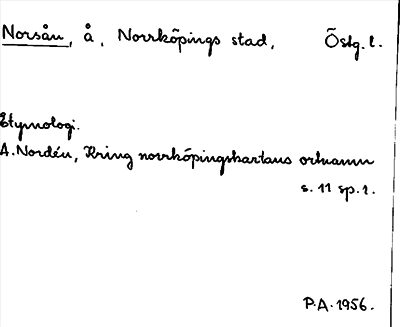 Norsån, å, Norrköpings stad, Östg. l.
Etymologi.
A. Nordén, Kring norrköpingskartans ortnamn
s. 11 sp. 1.
P.A. 1956.